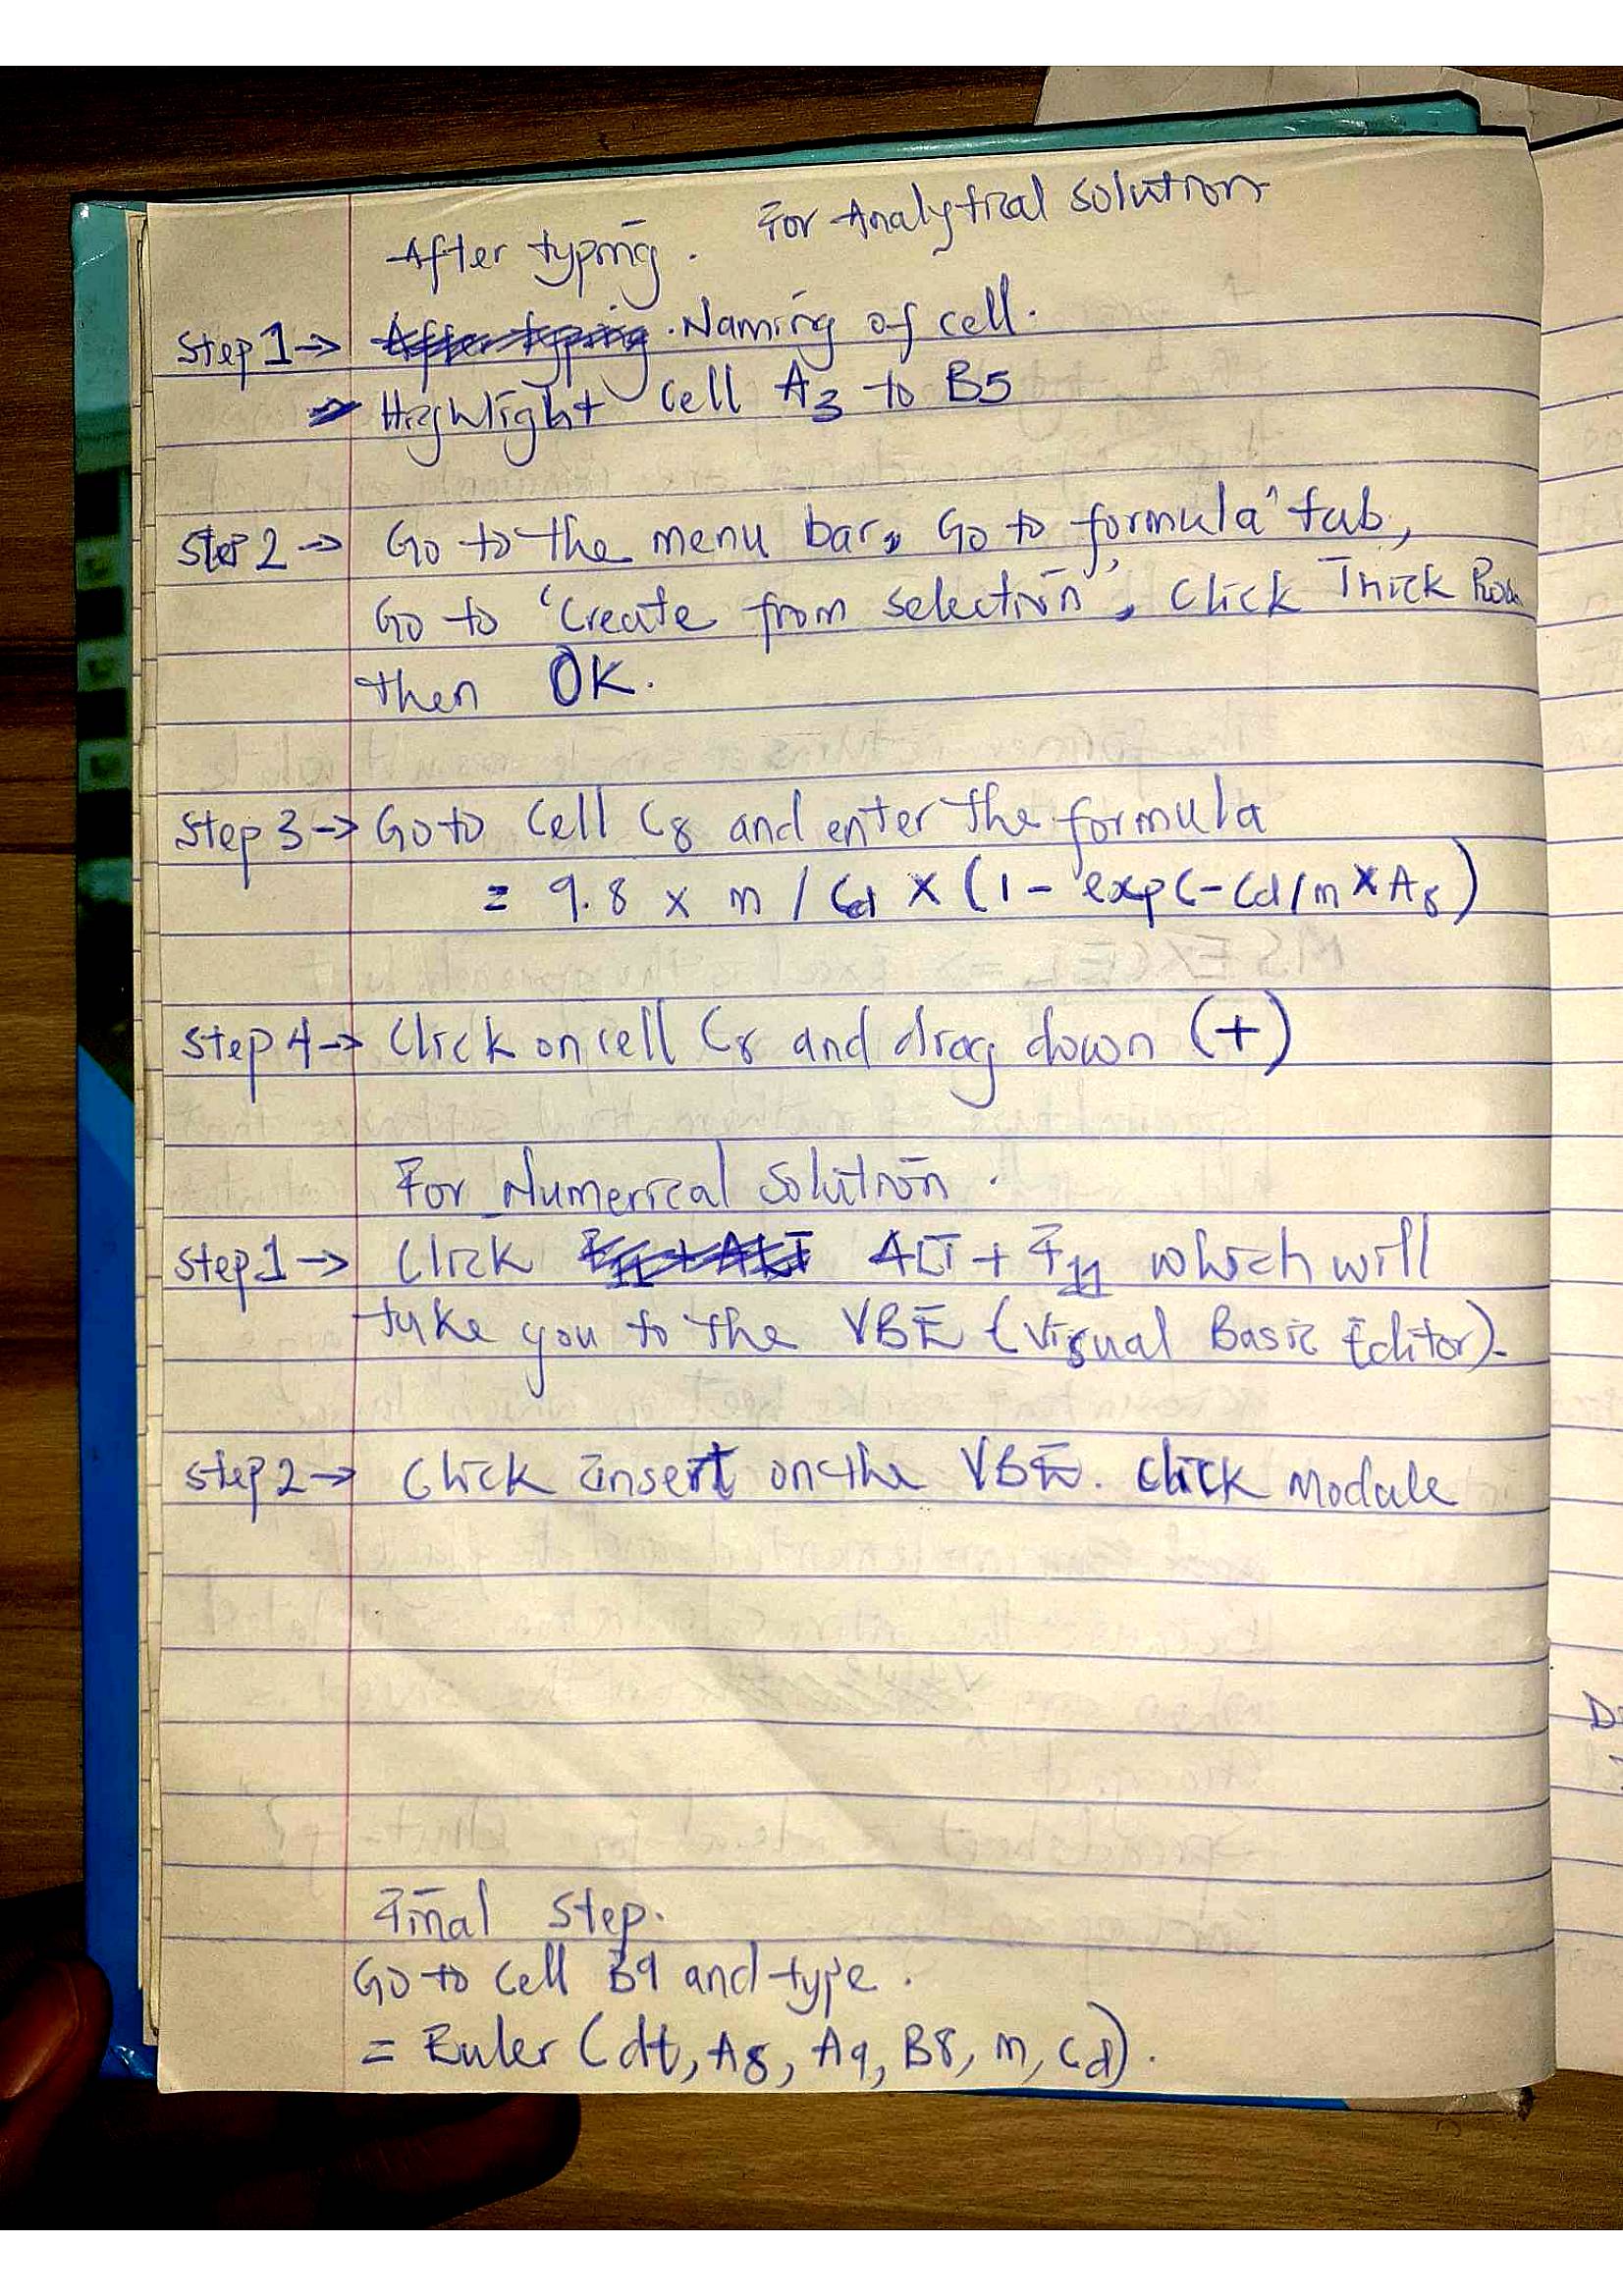 For Analytical solution
After typing.
Step 1 → Naming of cell.
→ Highlight cell A3 to B5
Step 2 → Go to the menu bar, Go to formula tab,
Go to 'Create from selection', Click Thick Box
then OK.
Step 3 → Go to Cell C8 and enter the formula
= 9.8 x m / Cd x (1 - exp(-Cd/m x A8)
Step 4 → Click on cell C8 and drag down (+)
For Numerical Solution.
Step 1 → Click ALT + F11 which will
take you to the VBE (Visual Basic Editor).
Step 2 → Click insert on the VBE. Click Module
Final Step.
Go to cell B9 and type.
= Euler (dt, A8, A9, B8, m, cd).